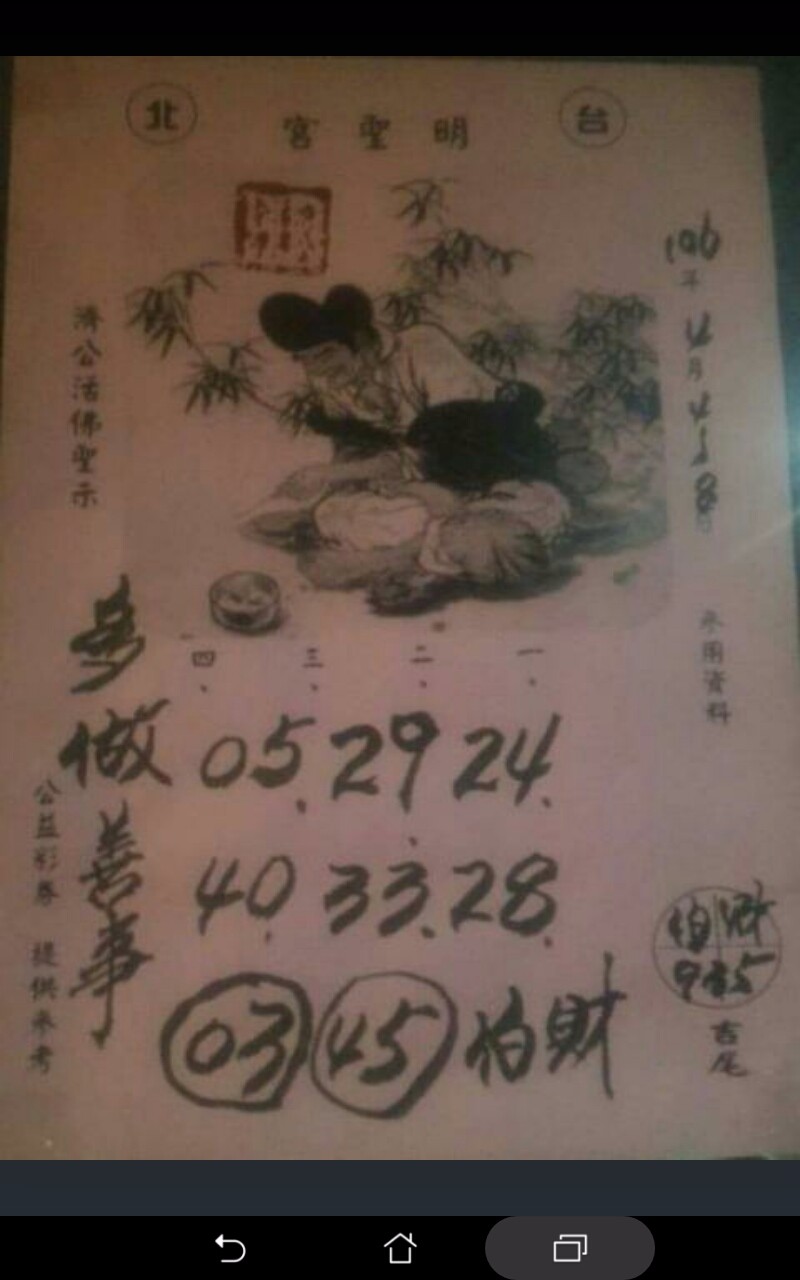 台 明聖宮 北
106年4月
參用資料
濟公活佛聖示
一、 二、 三、 四、
05. 29 24.
40. 33. 28.
03 45 財
多做善事
公益彩券 提供參考
財
吉尾